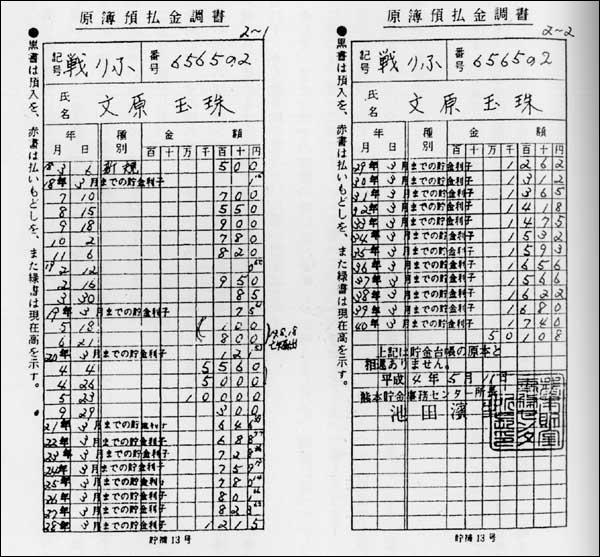 原簿預払金調書
2~1
●黒書は預入を、赤書は払いもどしを、また緑書は現在高を示す。
記号 戦りふ 番号 6565の2
氏名 文原玉珠
年月日 種別 金額
百十万千百十円
18 3 6 新規 500
18年3月までの貯金利子
7 10 700
8 15 550
9 18 900
10 2 780
11 6 820
19 2 12
2 16 950
3 30 85
19年3月までの貯金利子 75
5 18 100
6 21 800
20年3月までの貯金利子 121
4 4 5560
4 26 5000
5 23 10000
9 29 300
21年3月までの貯金利子
22年3月までの貯金利子 688
23年3月までの貯金利子 728
24年3月までの貯金利子 759
25年3月までの貯金利子 780
26年3月までの貯金利子 801
27年3月までの貯金利子 823
28年3月までの貯金利子 1215
貯補13号
原簿預払金調書
2~2
●黒書は預入を、赤書は払いもどしを、また緑書は現在高を示す。
記号 戦りふ 番号 6565の2
氏名 文原玉珠
年月日 種別 金額
百十万千百十円
29年3月までの貯金利子 1262
30年3月までの貯金利子 1312
31年3月までの貯金利子 1365
32年3月までの貯金利子 1418
33年3月までの貯金利子 1475
34年3月までの貯金利子 1532
35年3月までの貯金利子 1593
36年3月までの貯金利子 1656
37年3月までの貯金利子 1566
38年3月までの貯金利子 1622
39年3月までの貯金利子 1680
40年3月までの貯金利子 1740
50108
上記は貯金台帳の原本と
相違ありません。
平成4年5月11日
熊本貯金事務センター所長
池田濱
貯補13号